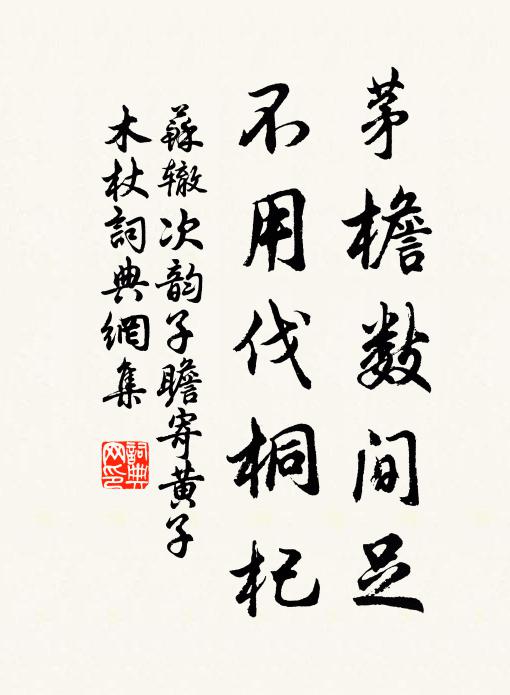 茅檐数间足
不用伐桐杞
蘇辙次韵子瞻寄黄子
木杖詞典網集
詞典
网印